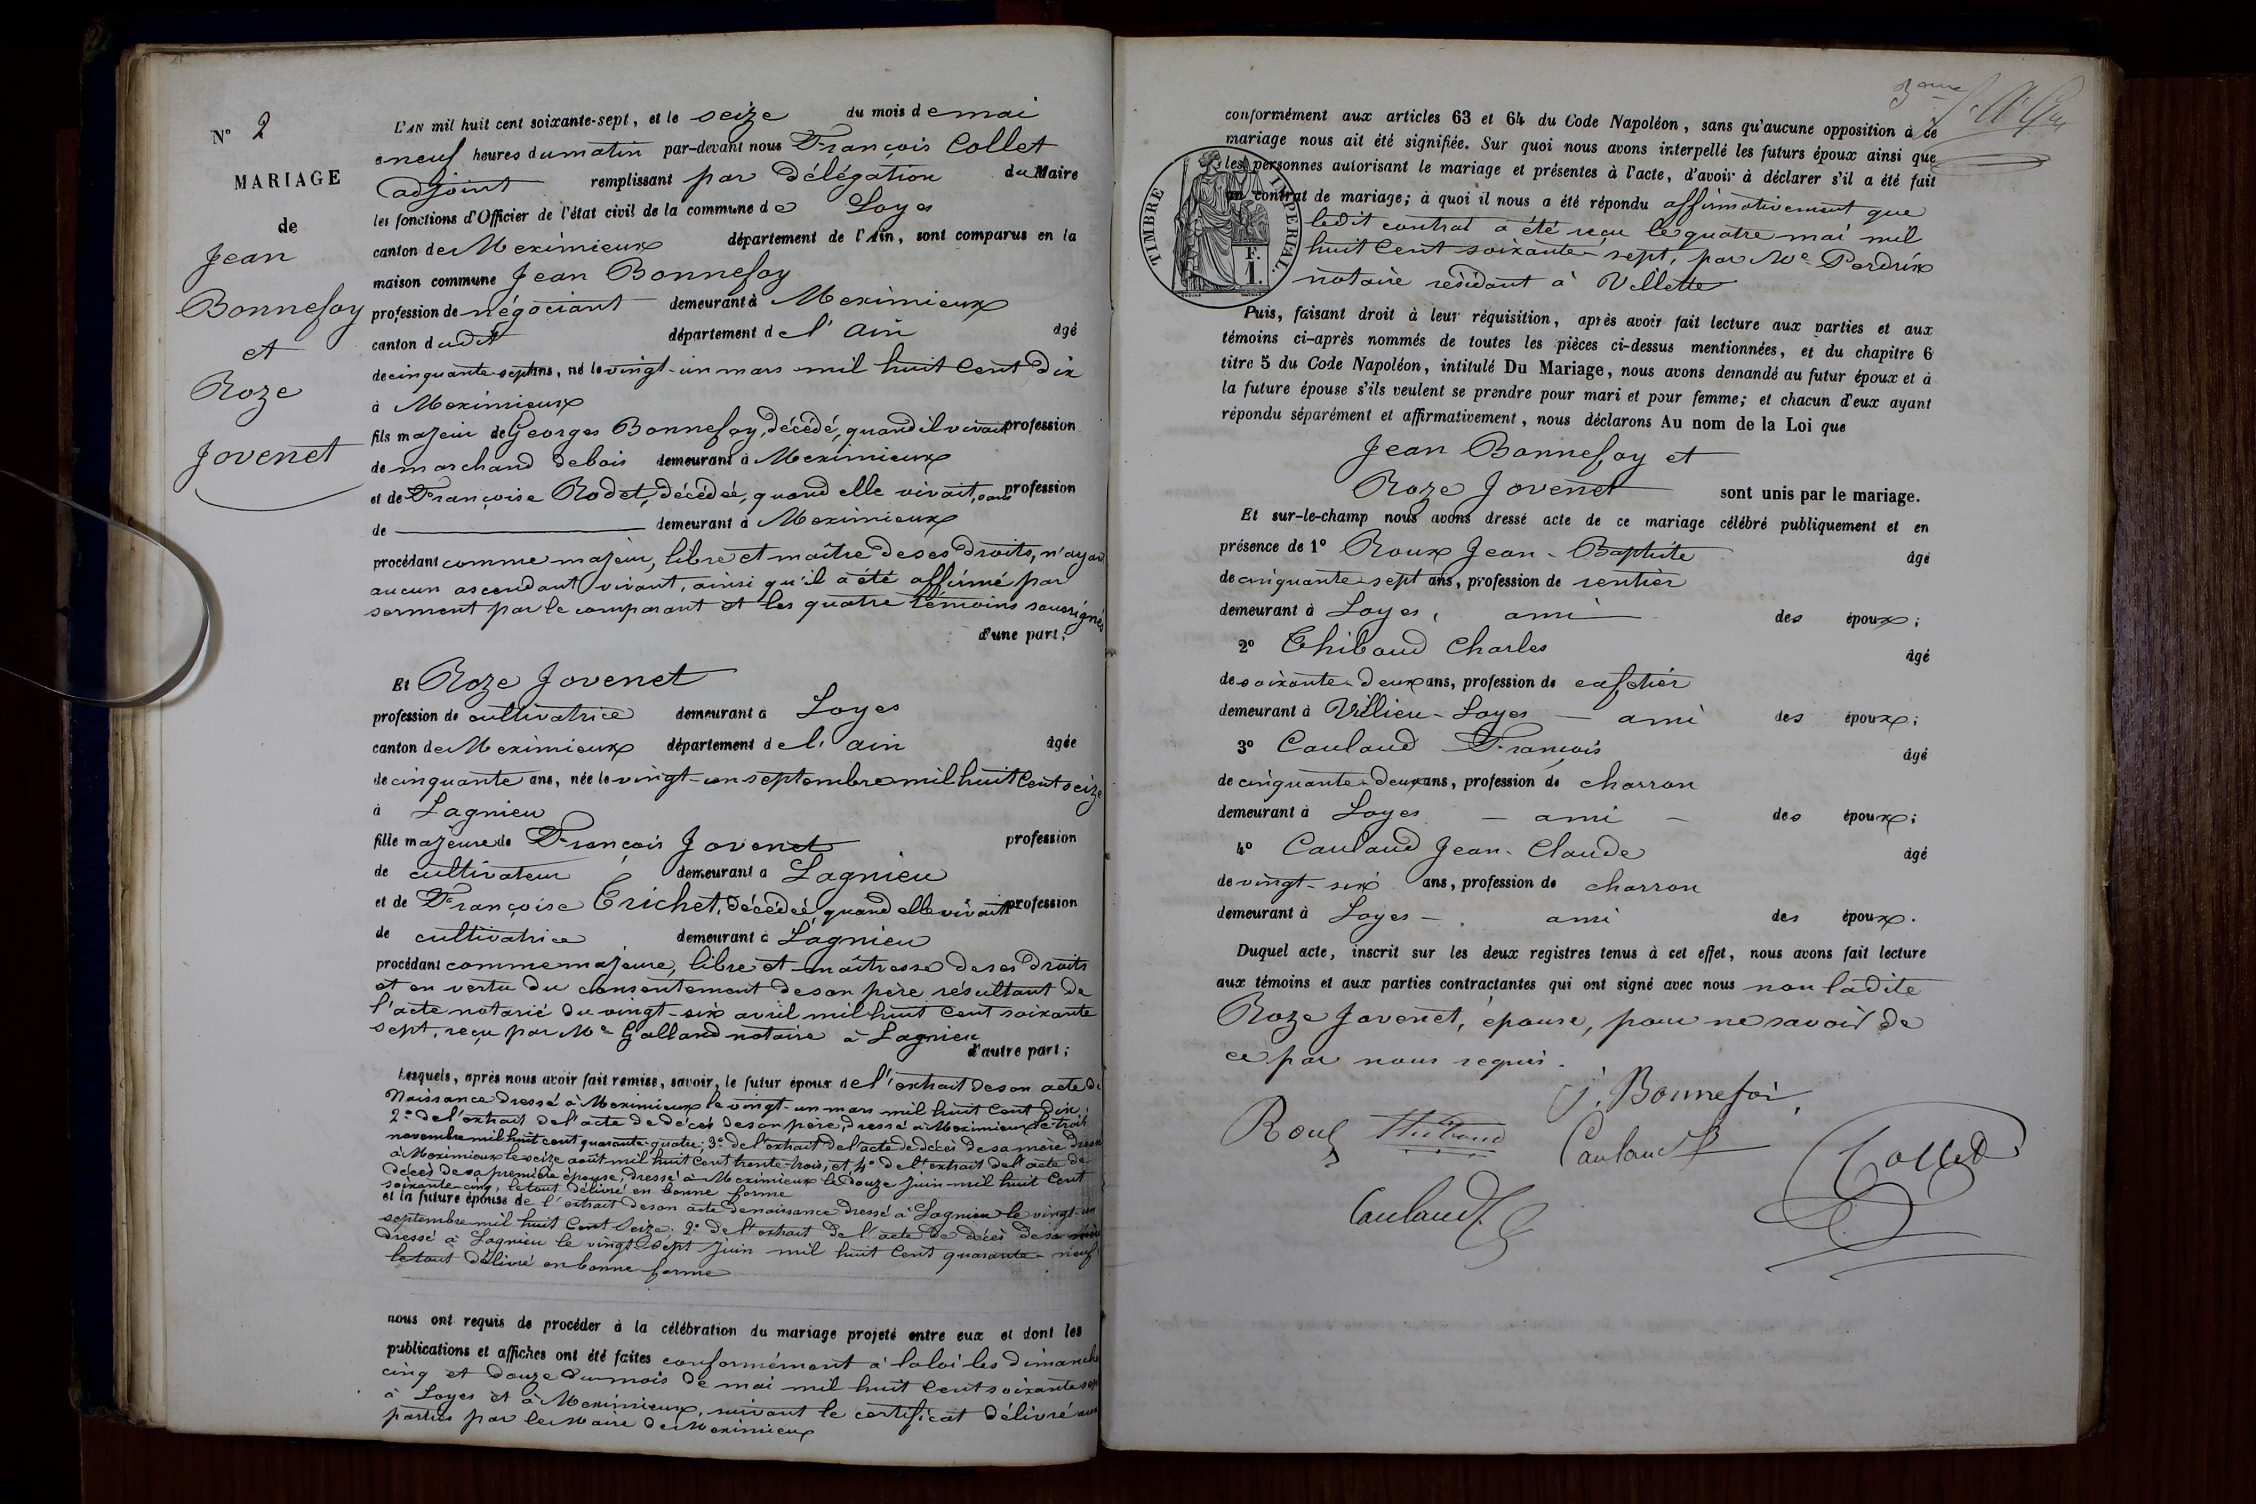 N° 2
MARIAGE
de
Jean
Bonnefoy
et
Roze
Jovenet
L'AN mil huit cent soixante-sept, et le seize du mois de mai
à neuf heures du matin par-devant nous François Collet
adjoint remplissant par délégation du Maire
les fonctions d'Officier de l'état civil de la commune de Loyes
canton de Meximieux département de l'Ain, sont comparus en la
maison commune Jean Bonnefoy
profession de négociant demeurant à Meximieux
canton dudit département de l'ain âgé
de cinquante-sept ans, né le vingt-un mars mil huit cent dix
à Meximieux
fils majeur de Georges Bonnefoy, décédé, quand il vivait profession
de marchand de bois demeurant à Meximieux
et de Françoise Rodet, décédée, quand elle vivait, sans profession
de demeurant à Meximieux
procédant comme majeur, libre et maître de ses droits, n'ayant
aucun ascendant vivant, ainsi qu'il a été affirmé par
serment par le comparant et les quatre témoins soussignés
d'une part;
Et Roze Jovenet
profession de cultivatrice demeurant à Loyes
canton de Meximieux département de l'ain âgée
de cinquante ans, née le vingt-un septembre mil huit cent seize
à Lagnieu
fille majeure de François Jovenet profession
de cultivateur demeurant à Lagnieu
et de Françoise Trichet, décédée, quand elle vivait profession
de cultivatrice demeurant à Lagnieu
procédant comme majeure, libre et maîtresse de ses droits
et en vertu du consentement de son père résultant de
l'acte notarié du vingt-six avril mil huit cent soixante
sept, reçu par Me Galland notaire à Lagnieu
d'autre part;
Lesquels, après nous avoir fait remise, savoir, le futur époux de l'extrait de son acte de
Naissance dressé à Meximieux le vingt-un mars mil huit cent dix;
2° de l'extrait de l'acte de décès de son père, dressé à Meximieux le trois
novembre mil huit cent quarante-quatre; 3° de l'extrait de l'acte de décès de sa mère dressé
à Meximieux le seize août mil huit cent trente-trois; et 4° de l'extrait de l'acte de
décès de sa première épouse, dressé à Meximieux le douze juin mil huit cent
soixante-cinq, le tout délivré en bonne forme
et la future épouse de l'extrait de son acte de naissance dressé à Lagnieu le vingt-un
septembre mil huit cent seize; 2° de l'extrait de l'acte de décès de sa mère
dressé à Lagnieu le vingt-sept juin mil huit cent quarante-neuf
le tout délivré en bonne forme
nous ont requis de procéder à la célébration du mariage projeté entre eux et dont les
publications et affiches ont été faites conformément à la loi les dimanches
cinq et douze du mois de mai mil huit cent soixante sept
à Loyes et à Meximieux, suivant le certificat délivré aux
parties par le Maire de Meximieux
conformément aux articles 63 et 64 du Code Napoléon, sans qu'aucune opposition à ce
mariage nous ait été signifiée. Sur quoi nous avons interpellé les futurs époux ainsi que
les personnes autorisant le mariage et présentes à l'acte, d'avoir à déclarer s'il a été fait
un contrat de mariage; à quoi il nous a été répondu affirmativement que
ledit contrat a été reçu le quatre mai mil
huit cent soixante-sept, par Me Perdrix
notaire résidant à Villette
TIMBRE IMPERIAL.
F.
1.
Puis, faisant droit à leur réquisition, après avoir fait lecture aux parties et aux
témoins ci-après nommés de toutes les pièces ci-dessus mentionnées, et du chapitre 6
titre 5 du Code Napoléon, intitulé Du Mariage, nous avons demandé au futur époux et à
la future épouse s'ils veulent se prendre pour mari et pour femme; et chacun d'eux ayant
répondu séparément et affirmativement, nous déclarons Au nom de la Loi que
Jean Bonnefoy et
Roze Jovenet sont unis par le mariage.
Et sur-le-champ nous avons dressé acte de ce mariage célébré publiquement et en
présence de 1° Roux Jean-Baptiste âgé
de cinquante sept ans, profession de rentier
demeurant à Loyes, ami des époux;
2° Thibaud Charles âgé
de soixante-deux ans, profession de cafetier
demeurant à Villieu-Loyes - ami des époux;
3° Caulaud François âgé
de cinquante-deux ans, profession de charron
demeurant à Loyes - ami - des époux;
4° Caulaud Jean-Claude âgé
de vingt-six ans, profession de charron
demeurant à Loyes - ami des époux.
Duquel acte, inscrit sur les deux registres tenus à cet effet, nous avons fait lecture
aux témoins et aux parties contractantes qui ont signé avec nous non ladite
Roze Jovenet, épouse, pour ne savoir de
ce par nous requis.
J. Bonnefoi
Roux Thibaud Caulaud Collet
Caulaud